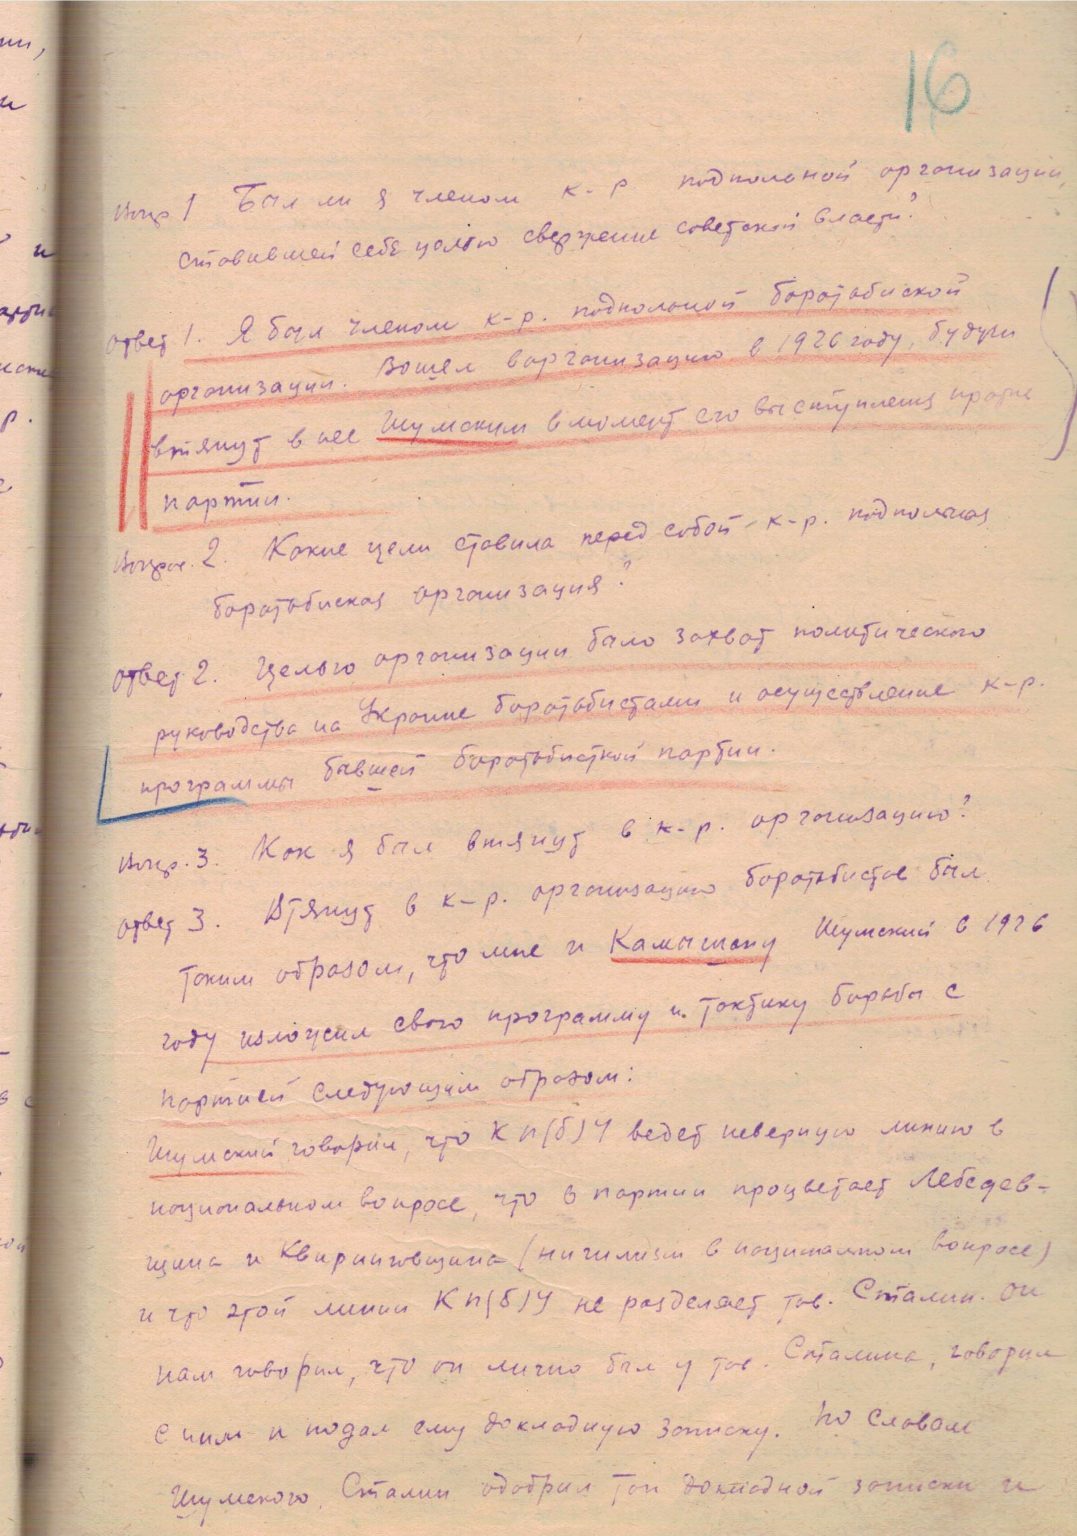 16
вопр 1 Был ли я членом к-р подпольной организации,
ставившей себе целью свержение советской власти?
ответ 1. Я был членом к-р. подпольной боротьбиской
организации. Вошел в организацию в 1926 году, будучи
втянут в нее Шумским в момент его выступления против
партии.
Вопрос. 2. Какие цели ставила перед собой к-р. подпольная
боротьбиская организация?
ответ 2. Целью организации было захват политического
руководства на Украине боротьбистами и осуществление к-р.
программы бывшей боротьбисткой партии.
Вопр. 3. Как я был втянут в к-р. организацию?
ответ 3. Втянут в к-р. организацию боротьбистов был
таким образом, что мне и Камышану Шумский в 1926
году изложил свою программу и тактику борьбы с
партией следующим образом:
Шумский говорил, что КП(б)У ведет неверную линию в
национальном вопросе, что в партии процветает Лебедев-
щина и Квиринговщина (нигилизм в национальном вопросе)
и что этой линии КП(б)У не разделяет тов. Сталин. Он
нам говорил, что он лично был у тов. Сталина, говорил
с ним и подал ему докладную записку. По словам
Шумского, Сталин одобрил тон докладной записки и